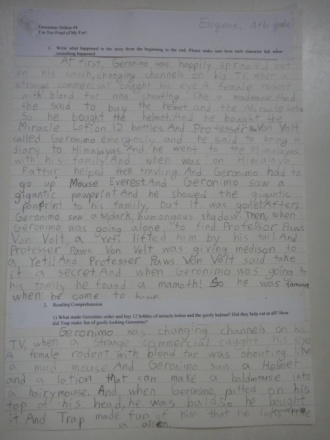 Geronimo Stilton #4
I'm Too Fond of My Fur!
Eugene, 4th grade
1. Write what happened in the story from the beginning to the end. Please make sure how each character felt when something happened.
At first, Geronimo was happily
on his couch, changing channels on his TV, when a
strange commercial caught his eye. A female rodent
with blond fur was shouting like a madmouse. And
she said to buy the helmet and the Miracle lotion
So he bought the helmet. And he bought the
Miracle Lotion 12 bottles. And Professor Von Volt
called Geronimo emergecly, and he said to bring a
diary to Himalayas. And he went to the Himalayas
with his family. And when was on Himalaya
helped traveling. And Geronimo had to
go up Mouse Everest. And Geronimo saw a
gigantic pawprint. And he showed the gigantic
pawprint to his family, but it was gone. After
Geronimo saw a dark, humongous shadow. Then, when
Geronimo was going alone, to find Profesor Paws
Von Volt, a Yeti lifted him by his tail. And
Professor Paws Von Volt was giving medison to
a Yeti! And Professor Paws Von Volt said take
it a secret. And when Geronimo was going to
his family he found a mamoth! So he was famous
when he come to home.
2. Reading Comprehension
1) What made Geronimo order and buy 12 bottles of miracle lotion and the helmet? How did Trap make fun of Geronimo?
Geronimo was changing channels on his
TV, when a strange commercial caught his eye
A female rodent with blond fur was shouting like
a mad mouse. And Geronimo saw a Helmet
and a lotion that can make a baldmouse into
a hairymouse. And when Geronimo patted on his
top of his head, he was bald. So he bought
it. And Trap made fun of him that he
a alien.